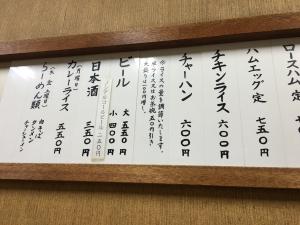 ロースハム
ハムエッグ定 七五〇
チキンライス 六〇〇円
チャーハン 六〇〇円
※ライスの量を調節いたします。
ビール 大 五五〇円
小 四〇〇円
ノンアルコールビール 二五〇円
日本酒 三五〇円
(月曜日)
カレーライス 五五〇円
らーめん類
タンメン